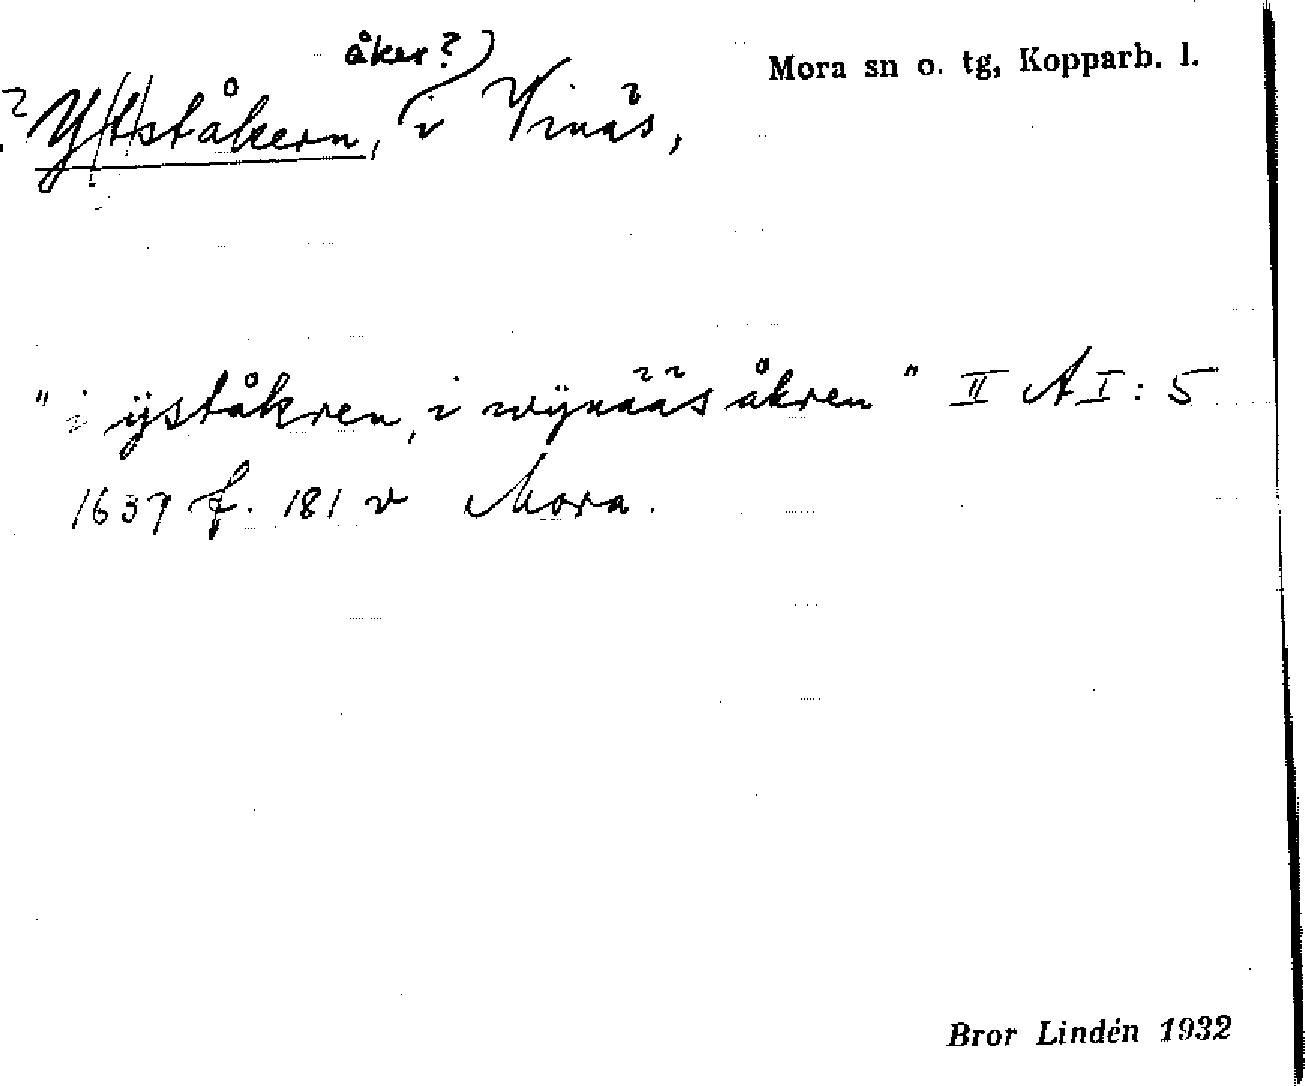 åker?)
Mora sn o. tg, Kopparb. l.
? Ytståkern, i Vinäs,
" i ÿståkren, i wÿnääs åkren " II A I : 5
1637 f. 181 v Mora.
Bror Lindén 1932